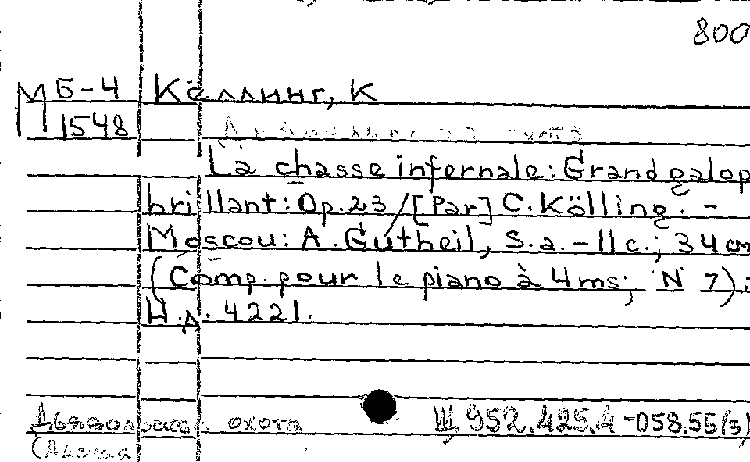 800
МБ-4 Кёллинг, К
1548
La chasse infernale: Grand galop
brillant: Op. 23 / [Par] C. Kölling. -
Moscou: A. Gutheil, S.a. - 11 c.; 34 cm
(Comp. pour le piano à 4 ms; N 7).:
Н.д. 4221.
Дьявольская охота Щ 952.425.4-058.55(3)